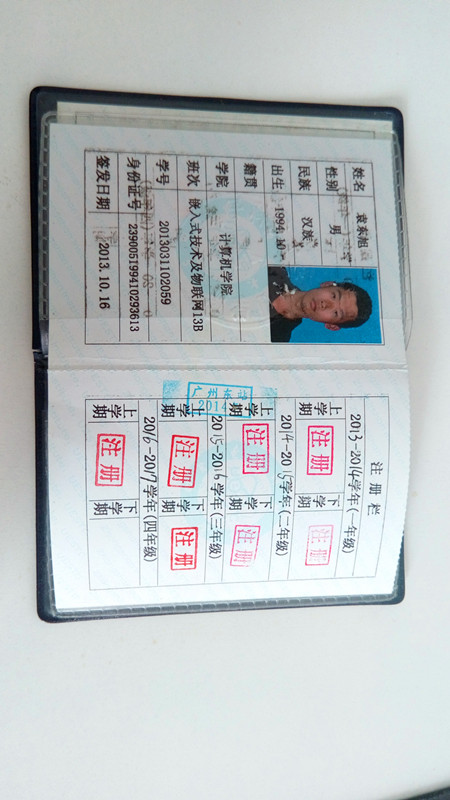 姓名 袁东旭
性别 男
民族 汉族
出生 1994.10
籍贯
学院 计算机学院
班次 嵌入式技术及物联网13B
学号 2013031102059
身份证号 239005199410293613
签发日期 2013.10.16
注册栏
2013-2014学年(一年级)
上学期 注册 下学期 注册
2014-2015学年(二年级)
上学期 注册 下学期 注册
2015-2016学年(三年级)
上学期 注册 下学期 注册
2016-2017学年(四年级)
上学期 注册 下学期
广州东站
2014